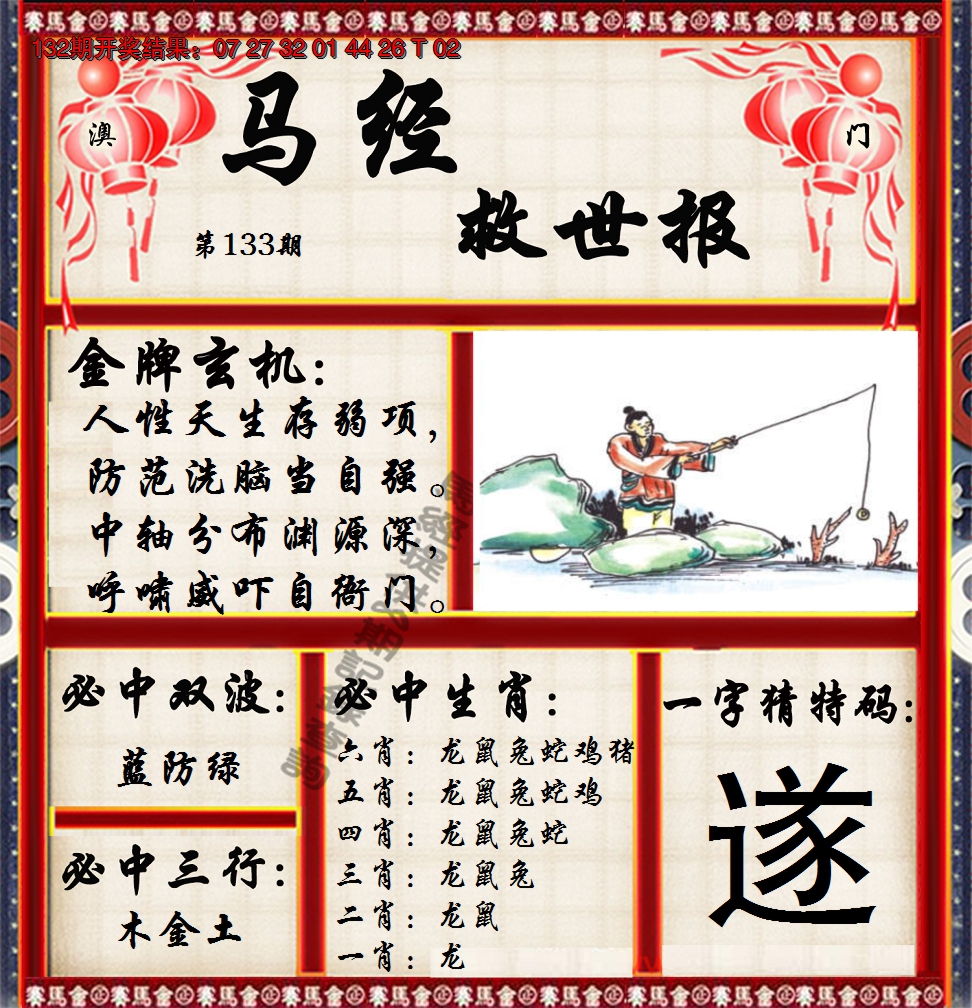 132期开奖结果：07 27 32 01 44 26 T 02
澳
门
马经
救世报
第133期
金牌玄机：
人性天生存弱项，
防范洗脑当自强。
中轴分布渊源深，
呼啸威吓自衙门。
必中双波：
蓝防绿
必中三行：
木金土
必中生肖：
六肖：龙鼠兔蛇鸡猪
五肖：龙鼠兔蛇鸡
四肖：龙鼠兔蛇
三肖：龙鼠兔
二肖：龙鼠
一肖：龙
一字猜特码：
遂